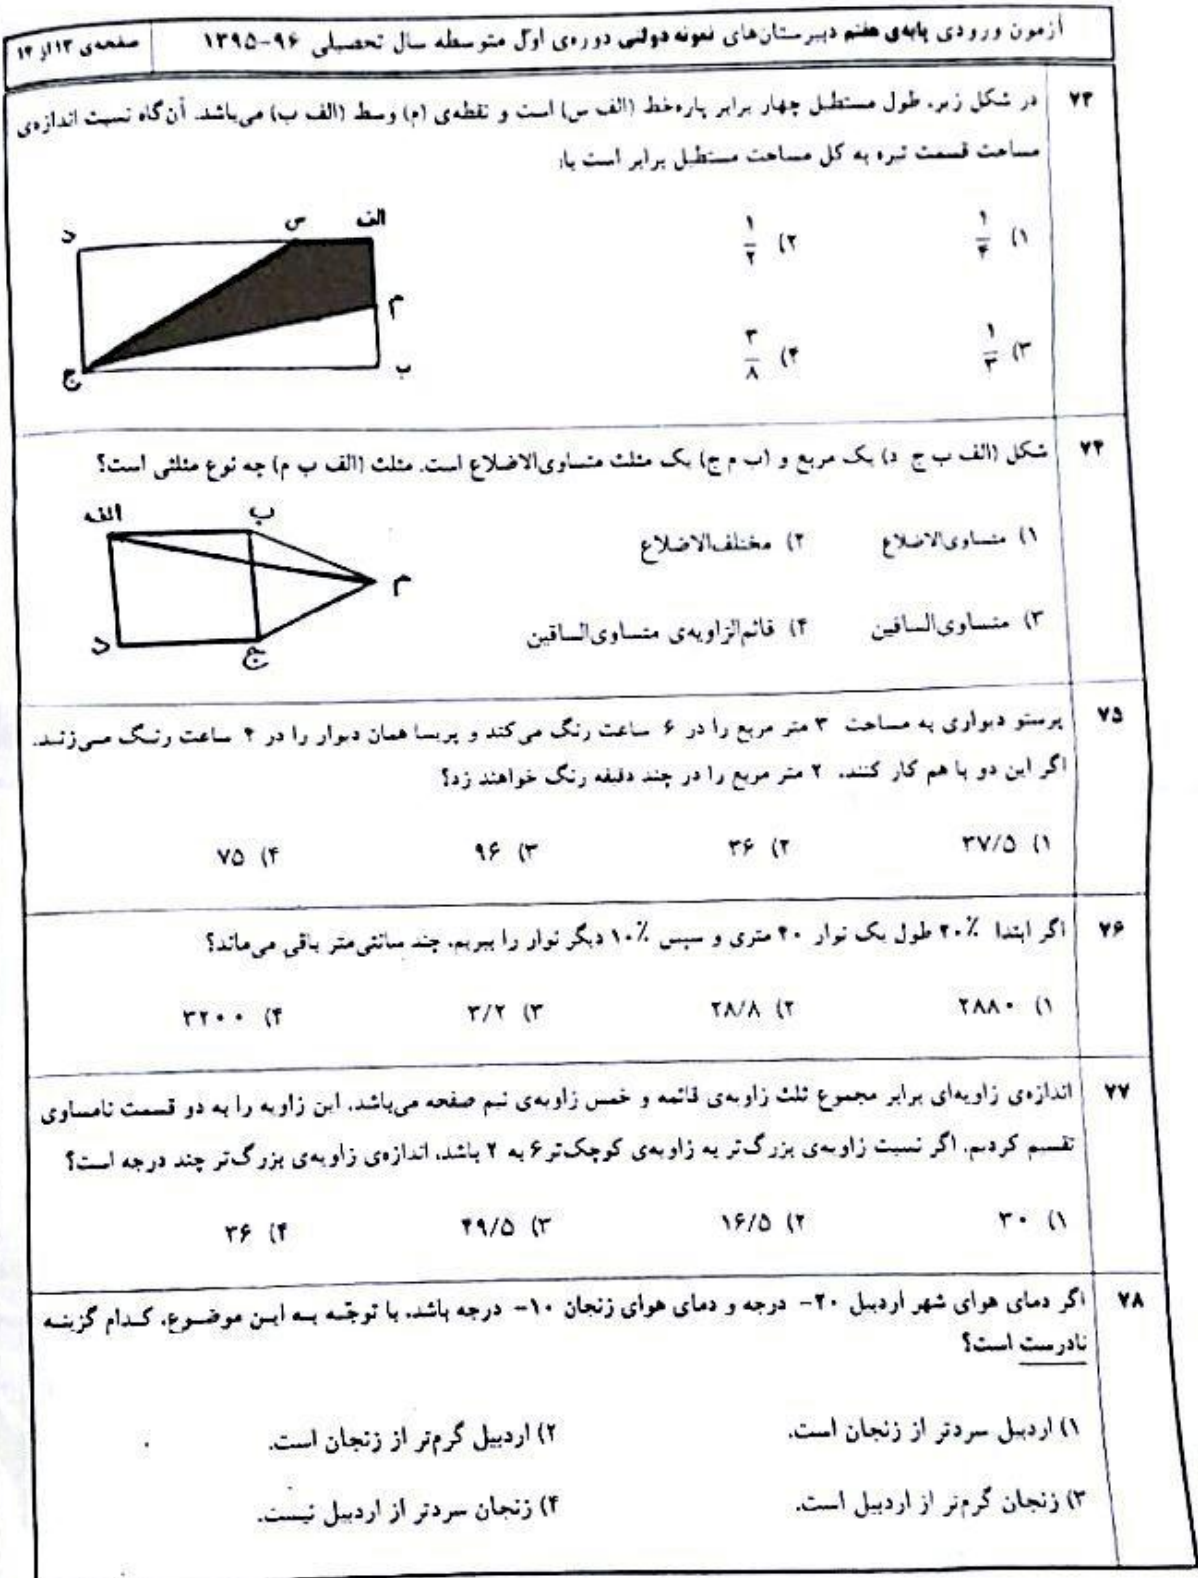 آزمون ورودی پایه‌ی هفتم دبیرستان‌های نمونه دولتی دوره‌ی اول متوسطه سال تحصیلی ۹۶-۱۳۹۵
صفحه‌ی ۱۳ از ۱۴
۷۳
در شکل زیر، طول مستطیل چهار برابر پاره‌خط (الف س) است و نقطه‌ی (م) وسط (الف ب) می‌باشد. آن‌گاه نسبت اندازه‌ی
مساحت قسمت تیره به کل مساحت مستطیل برابر است با:
۱) ۱/۴ ۲) ۱/۲
۳) ۱/۳ ۴) ۳/۸
د س الف
م
ج ب
۷۴
شکل (الف ب ج د) یک مربع و (ب م ج) یک مثلث متساوی‌الاضلاع است. مثلث (الف ب م) چه نوع مثلثی است؟
۱) متساوی‌الاضلاع ۲) مختلف‌الاضلاع
۳) متساوی‌الساقین ۴) قائم‌الزاویه‌ی متساوی‌الساقین
الف ب
م
د ج
۷۵
پرستو دیواری به مساحت ۳ متر مربع را در ۶ ساعت رنگ می‌کند و پریسا همان دیوار را در ۴ ساعت رنگ می‌زند.
اگر این دو با هم کار کنند، ۲ متر مربع را در چند دقیقه رنگ خواهند زد؟
۱) ۳۷/۵ ۲) ۳۶ ۳) ۹۶ ۴) ۷۵
۷۶
اگر ابتدا ۲۰٪ طول یک نوار ۴۰ متری و سپس ۱۰٪ دیگر نوار را ببریم، چند سانتی‌متر باقی می‌ماند؟
۱) ۲۸۸۰ ۲) ۲۸/۸ ۳) ۳/۲ ۴) ۳۲۰۰
۷۷
اندازه‌ی زاویه‌ای برابر مجموع ثلث زاویه‌ی قائمه و خمس زاویه‌ی نیم صفحه می‌باشد. این زاویه را به دو قسمت نامساوی
تقسیم کردیم. اگر نسبت زاویه‌ی بزرگ‌تر به زاویه‌ی کوچک‌تر ۶ به ۲ باشد، اندازه‌ی زاویه‌ی بزرگ‌تر چند درجه است؟
۱) ۳۰ ۲) ۱۶/۵ ۳) ۴۹/۵ ۴) ۳۶
۷۸
اگر دمای هوای شهر اردبیل ۲۰- درجه و دمای هوای زنجان ۱۰- درجه باشد. با توجّه به این موضوع، کدام گزینه
نادرست است؟
۱) اردبیل سردتر از زنجان است. ۲) اردبیل گرم‌تر از زنجان است.
۳) زنجان گرم‌تر از اردبیل است. ۴) زنجان سردتر از اردبیل نیست.